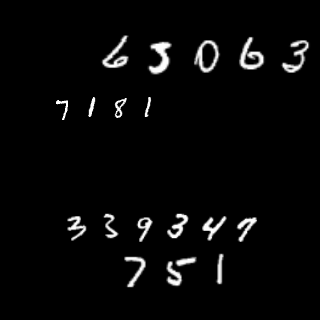 65063
7181
339347
751